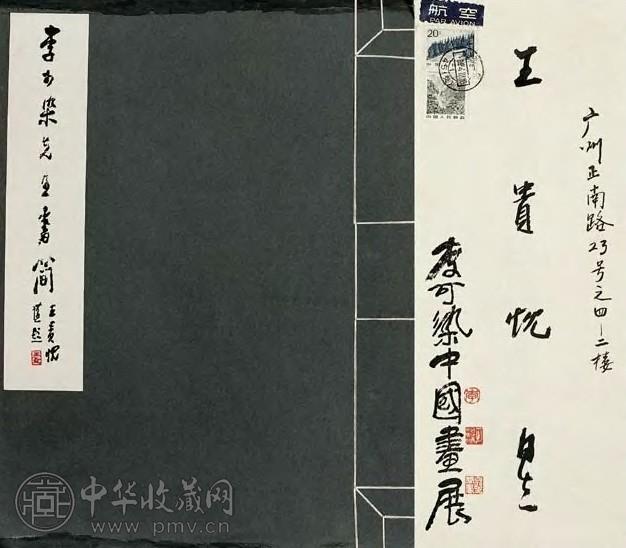 李可染先生書简
王貴忱
谨題
航空
PAR AVION
20
中国人民邮政
李可染中國畫展
王貴忱
广州正南路23号之四-二楼
中华收藏网
www.pmv.cn